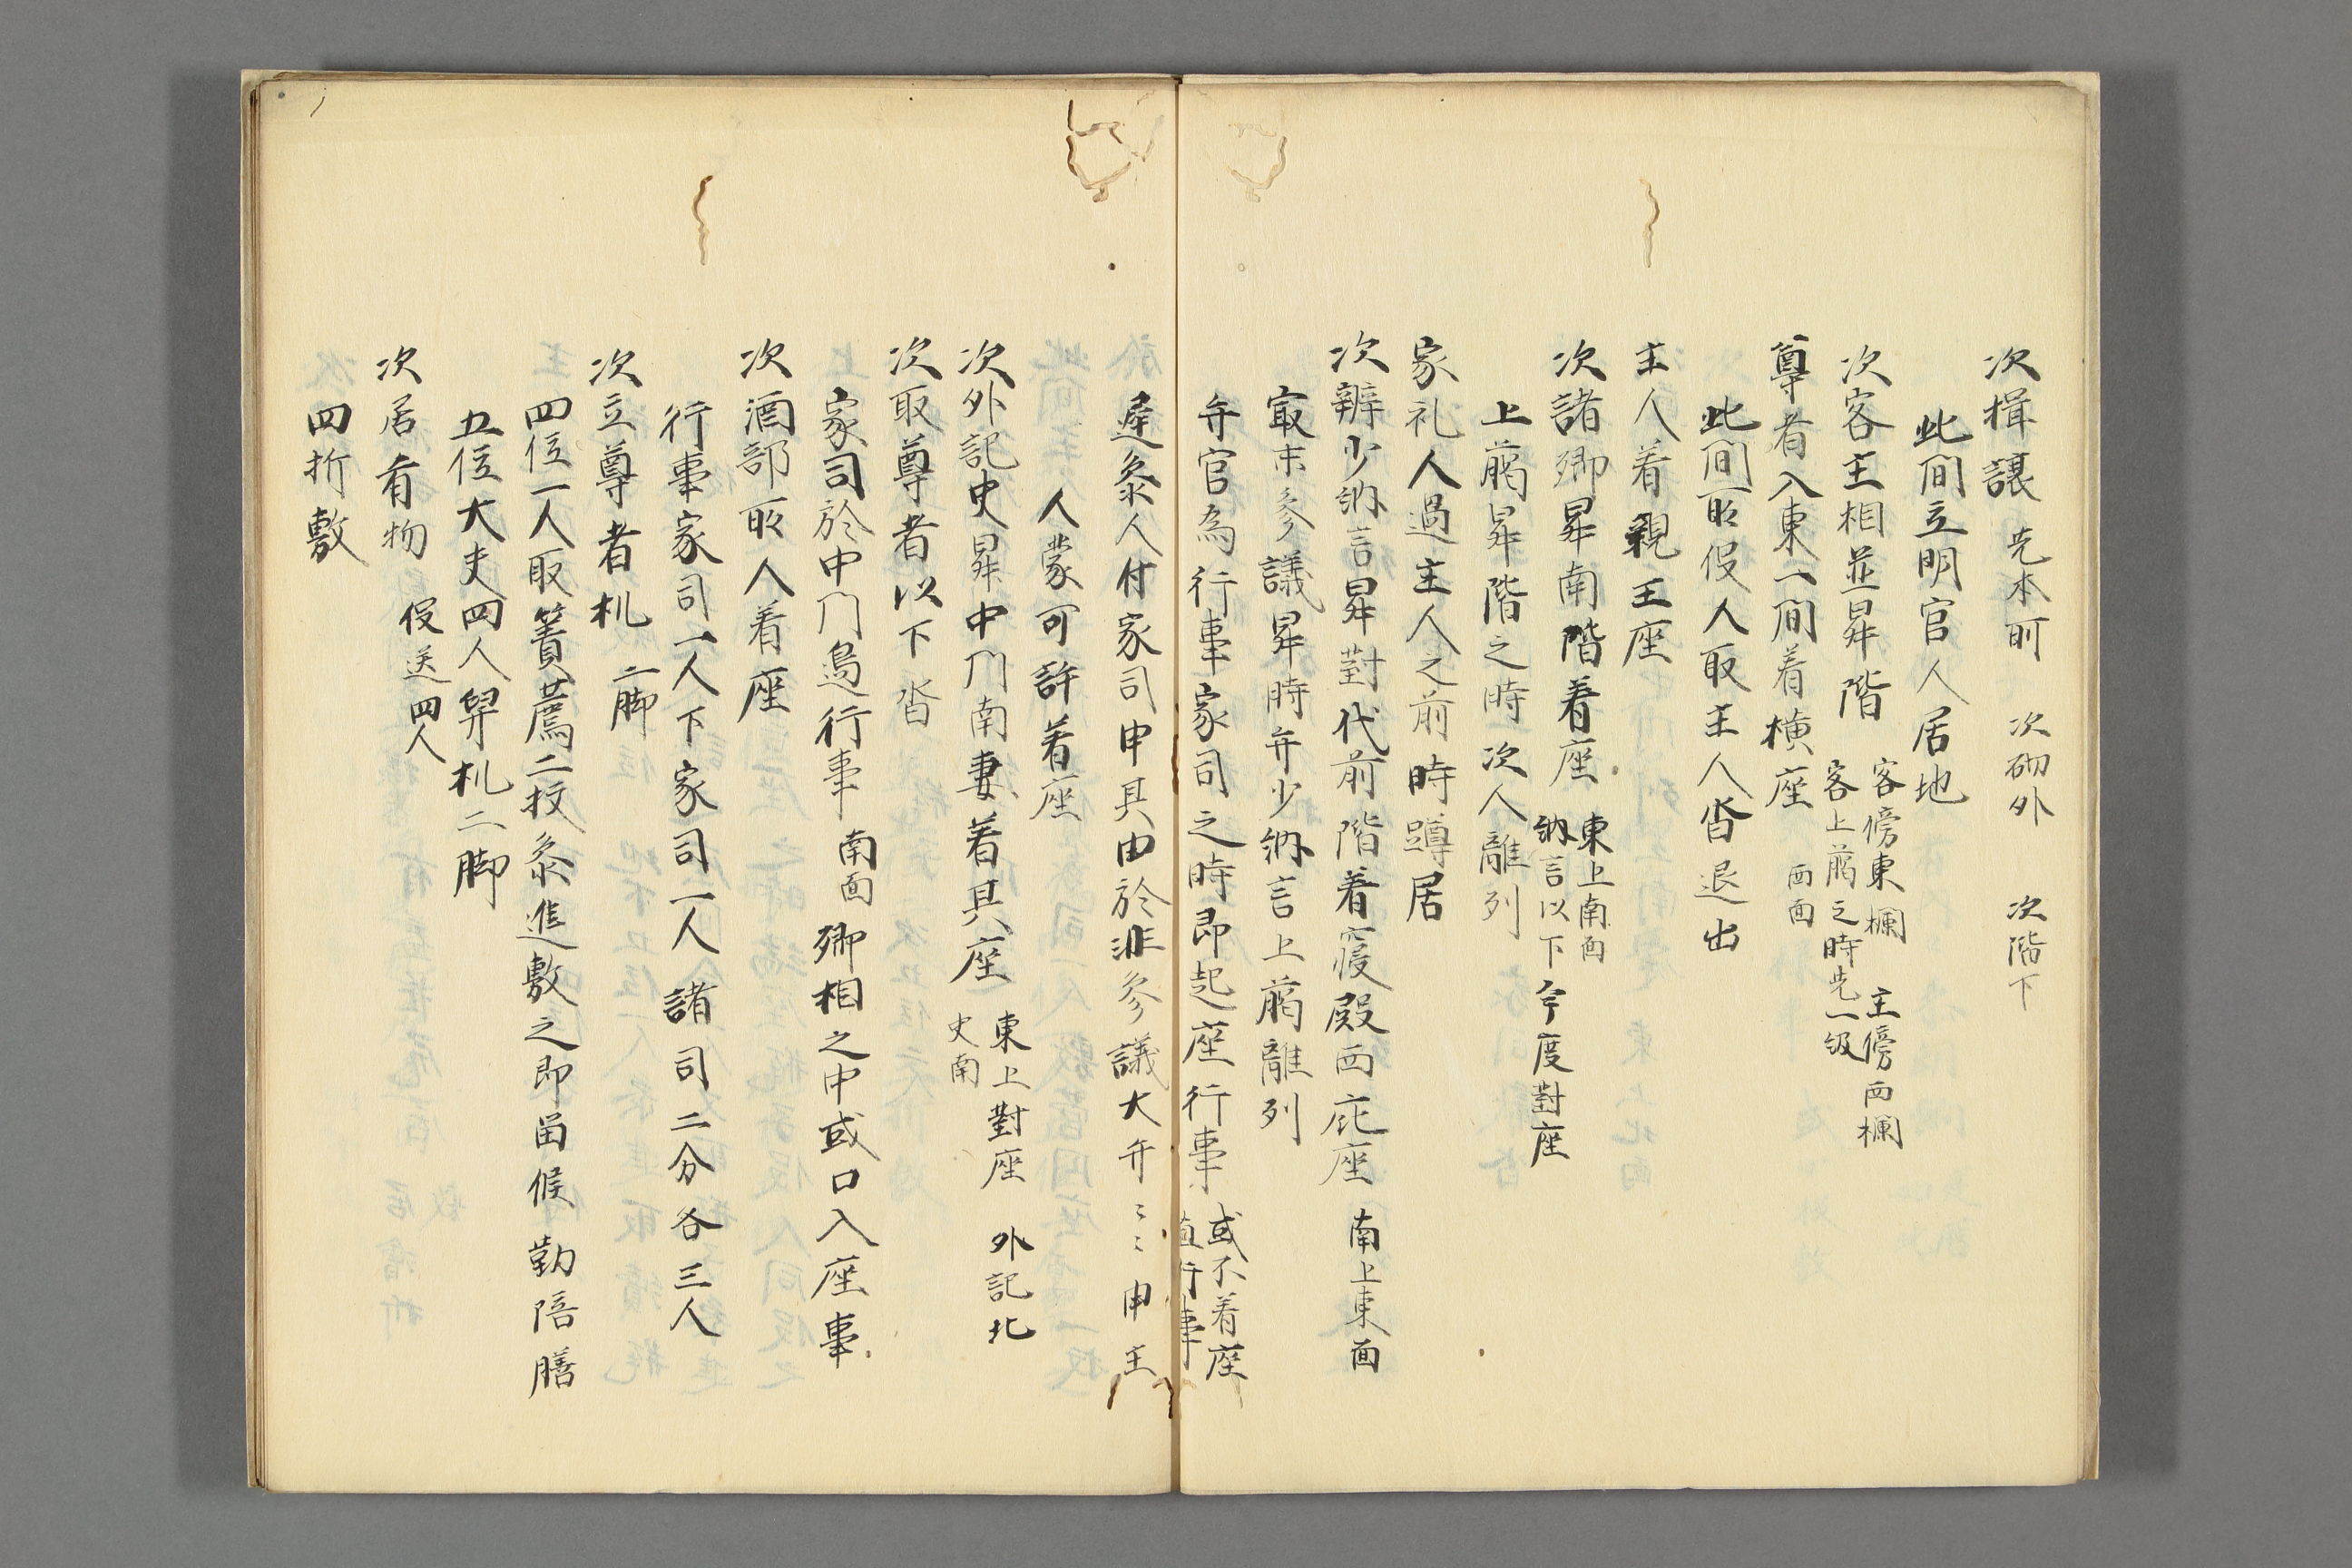 次揖譲 先本所 次砌外 次階下
此間立明官人居地
次客主相並昇階 客傍東欄 主傍西欄
客上﨟之時先一級
尊者入東一間着横座 西面
此間所役人取主人沓退出
主人着親王座
次諸卿昇南階着座 東上南面
納言以下今度對座
上﨟昇階之時次人離列
家礼人過主人之前時蹲居
次辨少納言昇對代前階着寝殿西庇座 南上東面
最末参議昇時弁少納言上﨟離列
弁官為行事家司之時即起座行事 或不着座
直行事
遅参人付家司申其由於非参議大弁〻〻申主
人蒙可許着座
次外記史昇中門南妻着其座 東上對座 外記北
史南
次取尊者以下沓
家司於中門邊行事 南面 卿相之中或口入座事
次酒部所人着座
行事家司一人下家司一人諸司二分各三人
次立尊者机 二脚
四位一人取簀薦二枚参進敷之即留候勤陪膳
五位大夫四人舁机二脚
次居肴物 役送四人
四折敷